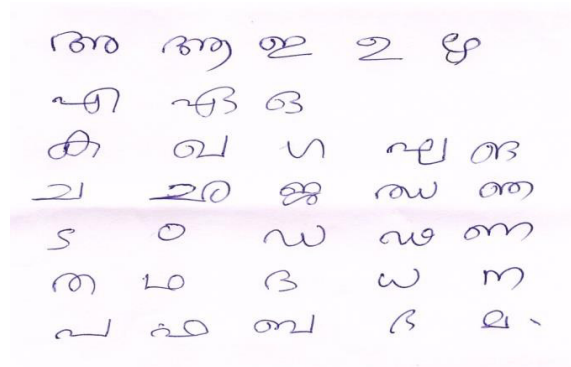 അ ആ ഇ ഉ ഋ
എ ഏ ഒ
ക ഖ ഗ ഘ ങ
ച ഛ ജ ഝ ഞ
ട ഠ ഡ ഢ ണ
ത ഥ ദ ധ ന
പ ഫ ബ ഭ മ